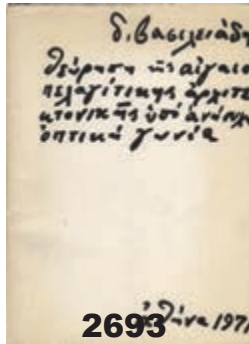 δ. βασιλειάδη
θεώρηση τῆς αἰγαιο
πελαγίτικης ἀρχιτε
κτονικῆς ὑπό ἀνήσυχη
ὀπτική γωνία
ἀθήνα 1971
2693